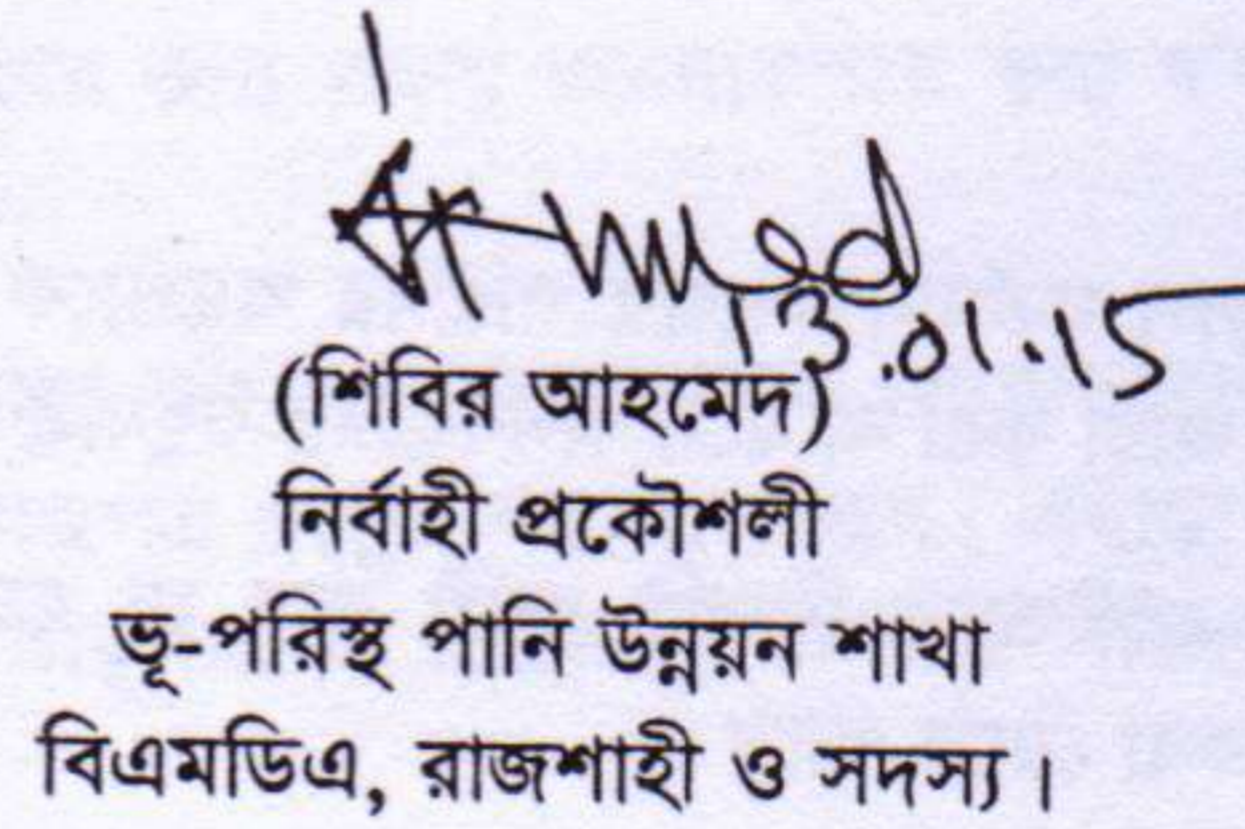 13.01.15
(শিবির আহমেদ)
নির্বাহী প্রকৌশলী
ভূ-পরিস্থ পানি উন্নয়ন শাখা
বিএমডিএ, রাজশাহী ও সদস্য।